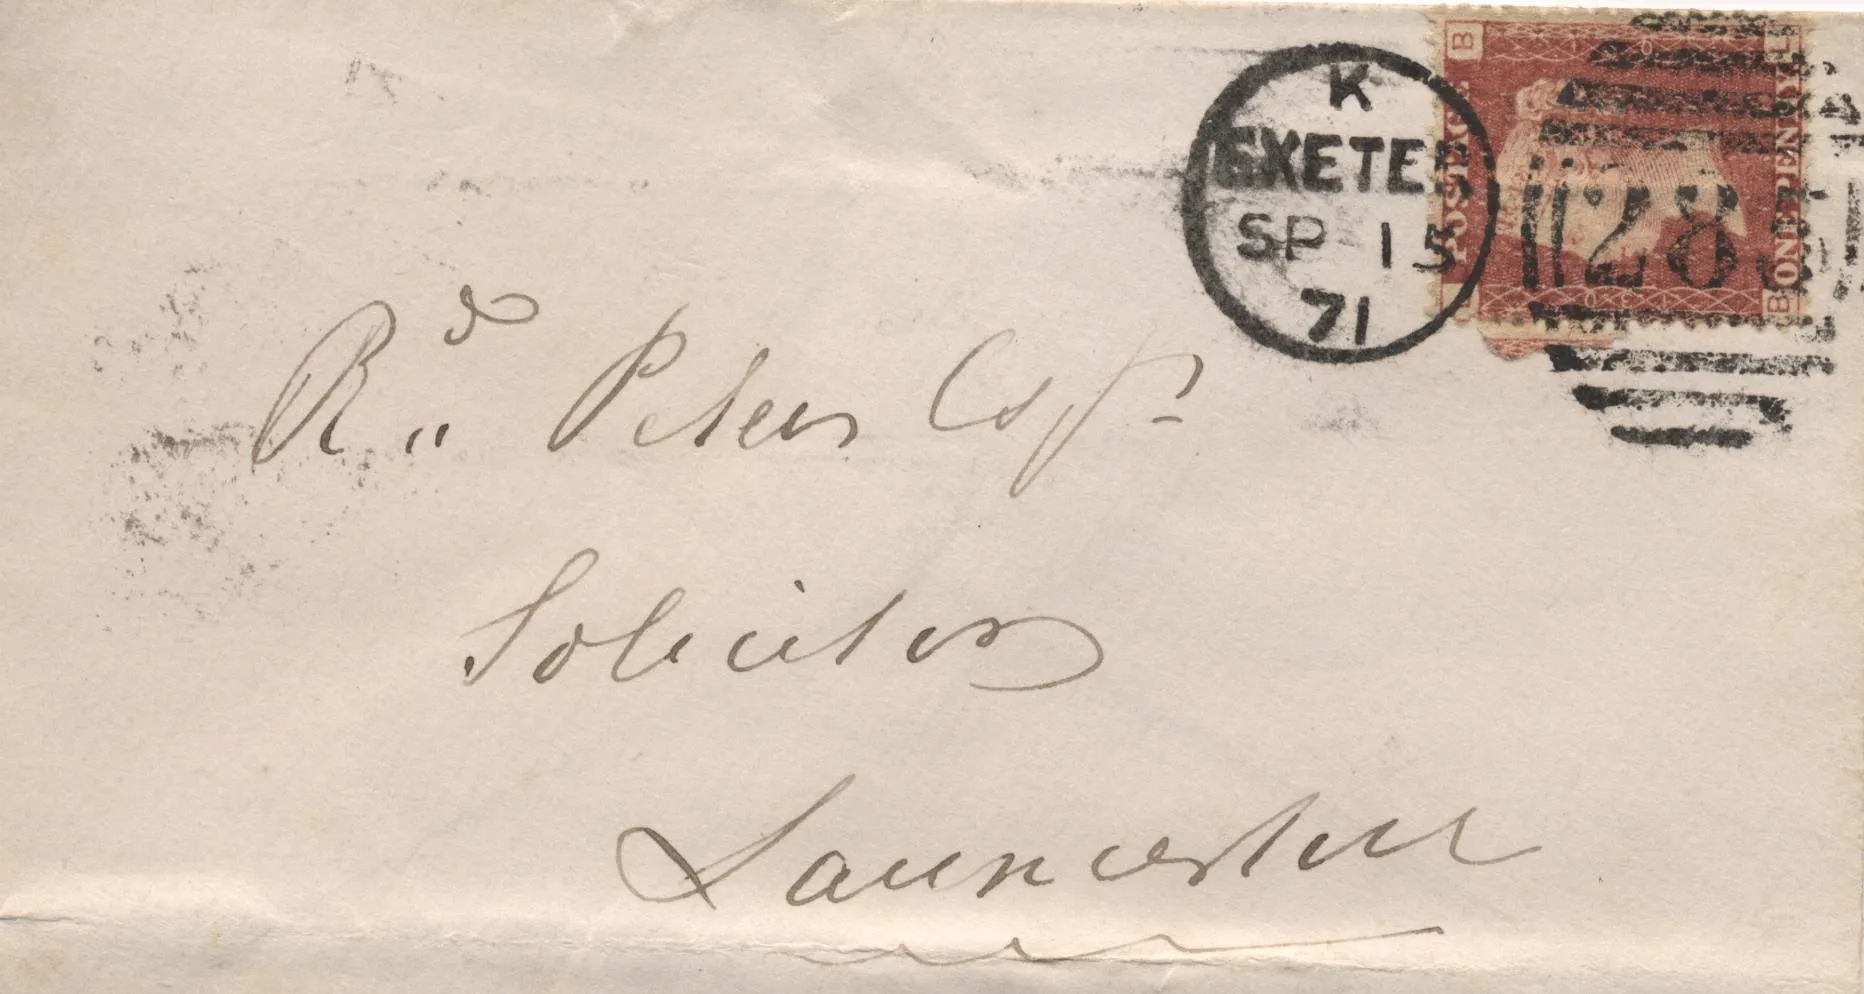 K
EXETER
SP 15
71
B L
POSTAGE
ONE PENNY
285
L B
Rd Peter Esqr
Solicitor
Launceston